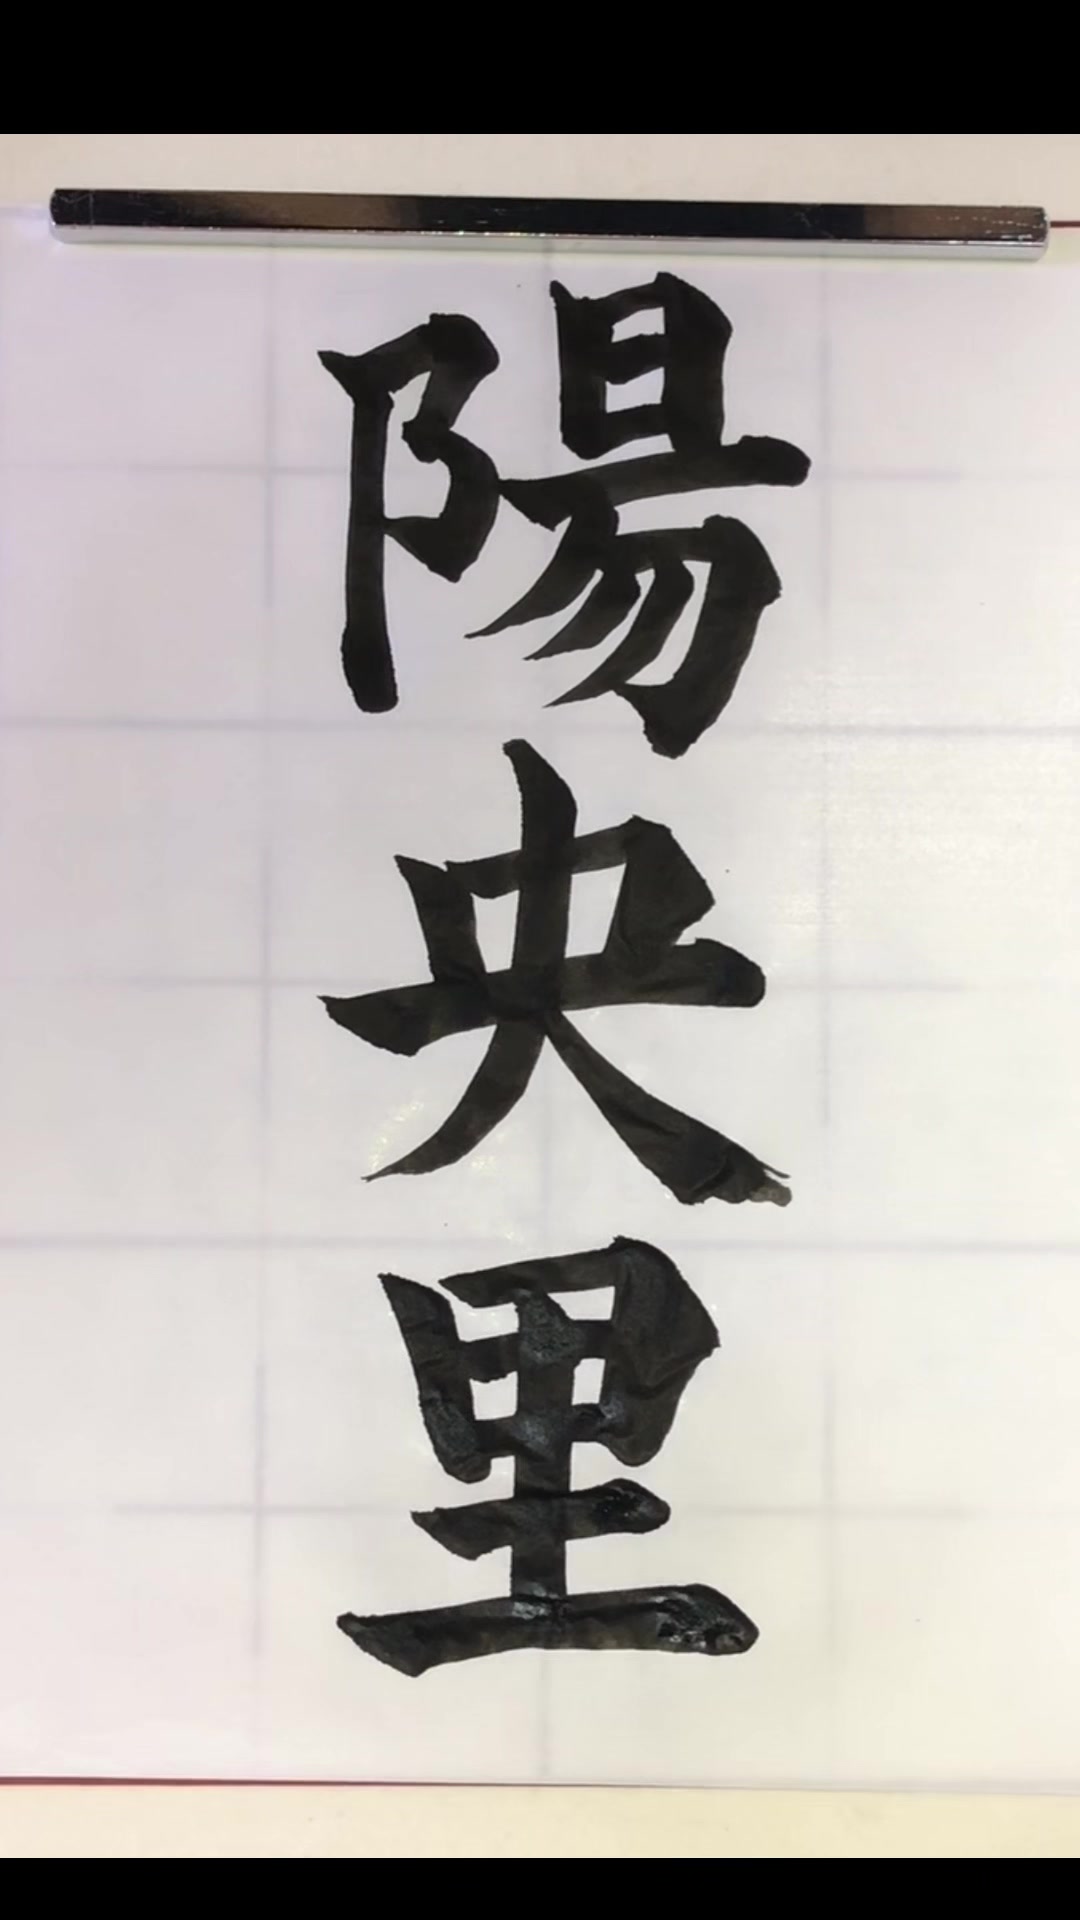 陽央里